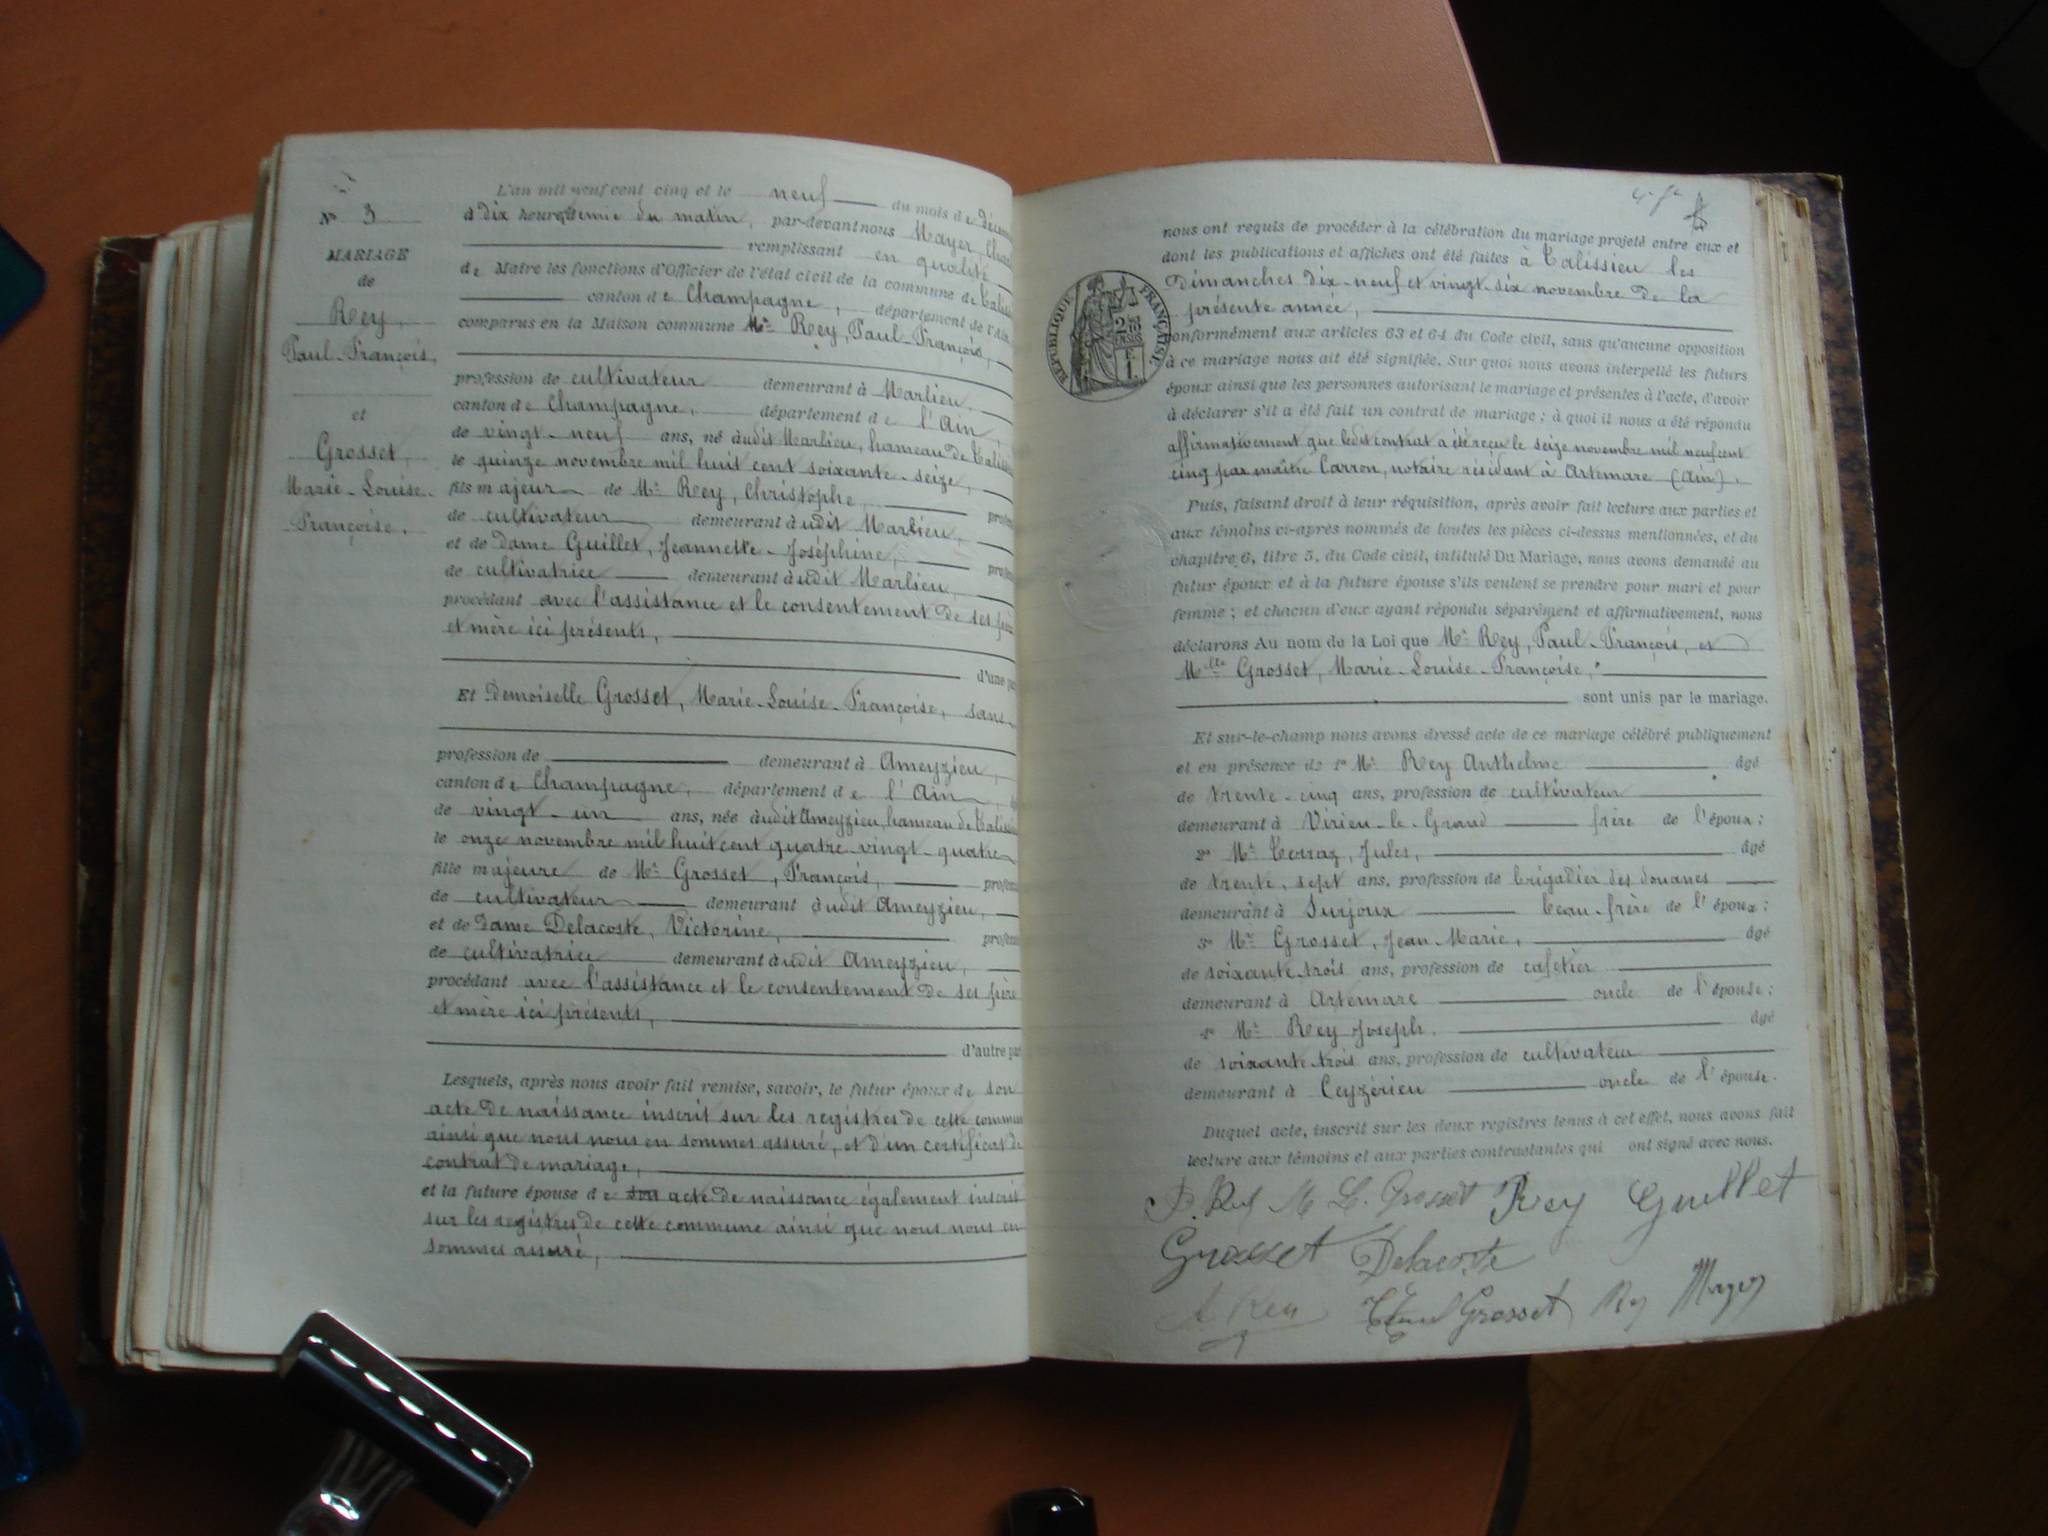 N° 3
MARIAGE
de
Rey,
Paul-François,
et
Grosset,
Marie-Louise-
Françoise.
L'an mil neuf cent cinq et le neuf du mois de décem
à dix heures demie du matin, par-devant nous Mayer, Char
remplissant en qualité
de Maire les fonctions d'Officier de l'état civil de la commune de Talissi
canton de Champagne, département de l'Ain,
comparus en la Maison commune Mr Rey, Paul-François,
profession de cultivateur demeurant à Marlieu,
canton de Champagne, département de l'Ain,
de vingt-neuf ans, né à udit Marlieu, hameau de Talissi
le quinze novembre mil huit cent soixante-seize,
fils majeur de Mr Rey, Christophe, profes
de cultivateur demeurant à udit Marlieu,
et de Dame Guillet, Jeannette-Joséphine, profes
de cultivatrice demeurant à udit Marlieu,
procédant avec l'assistance et le consentement de ses père
et mère ici présents,
d'une pa
Et Demoiselle Grosset, Marie-Louise-Françoise, sans
profession de demeurant à Ameyzieu,
canton de Champagne, département de l'Ain,
de vingt-un ans, née à udit Ameyzieu, hameau de Talissi
le onze novembre mil huit cent quatre-vingt-quatre
fille majeure de Mr Grosset, François, profes
de cultivateur demeurant à udit Ameyzieu,
et de Dame Delacoste, Victorine, profes
de cultivatrice demeurant à udit Ameyzieu,
procédant avec l'assistance et le consentement de ses père
et mère ici présents,
d'autre par
Lesquels, après nous avoir fait remise, savoir, le futur époux de son
acte de naissance inscrit sur les registres de cette commun
ainsi que nous nous en sommes assuré, et d'un certificat de
contrat de mariage,
et la future épouse de son acte de naissance également inscrit
sur les registres de cette commune ainsi que nous nous en
sommes assuré,
nous ont requis de procéder à la célébration du mariage projeté entre eux et
dont les publications et affiches ont été faites à Talissieu les
Dimanches dix-neuf et vingt-six novembre de la
présente année,
conformément aux articles 63 et 64 du Code civil, sans qu'aucune opposition
à ce mariage nous ait été signifiée. Sur quoi nous avons interpellé les futurs
époux ainsi que les personnes autorisant le mariage et présentes à l'acte, d'avoir
à déclarer s'il a été fait un contrat de mariage; à quoi il nous a été répondu
affirmativement que ledit contrat a été reçu le seize novembre mil neuf cent
cinq par maître Carron, notaire résidant à Artemare (Ain).
Puis, faisant droit à leur réquisition, après avoir fait lecture aux parties et
aux témoins ci-après nommés de toutes les pièces ci-dessus mentionnées, et du
chapitre 6, titre 5, du Code civil, intitulé Du Mariage, nous avons demandé au
futur époux et à la future épouse s'ils veulent se prendre pour mari et pour
femme; et chacun d'eux ayant répondu séparément et affirmativement, nous
déclarons Au nom de la Loi que Mr Rey, Paul-François, et
Mlle Grosset, Marie-Louise-Françoise,
sont unis par le mariage.
Et sur-le-champ nous avons dressé acte de ce mariage célébré publiquement
et en présence de 1° Mr Rey Anthelme âgé
de trente-cinq ans, profession de cultivateur
demeurant à Virieu-le-Grand frère de l'époux;
2° Mr Terraz, Jules, âgé
de trente, sept ans, profession de brigadier des douanes
demeurant à Surjoux beau-frère de l'époux;
3° Mr Grosset, Jean Marie, âgé
de soixante trois ans, profession de cafetier
demeurant à Artemare oncle de l'épouse;
4° Mr Rey Joseph. âgé
de soixante trois ans, profession de cultivateur
demeurant à Ceyzérieu oncle de l'épouse.
Duquel acte, inscrit sur les deux registres tenus à cet effet, nous avons fait
lecture aux témoins et aux parties contractantes qui ont signé avec nous.
P. Rey M L. Grosset Rey Guillet
Grosset Delacoste
A Rey Grosset Rey Mayer
RÉPUBLIQUE FRANÇAISE